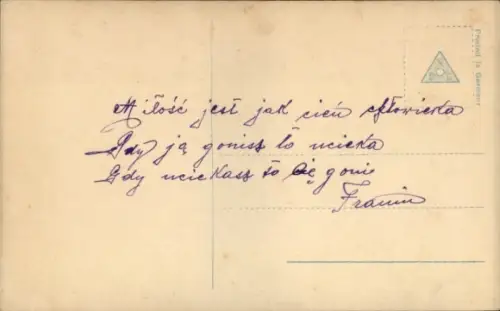 Miłość jest jak cień człowieka
Gdy ją gonisz to ucieka
Gdy uciekasz to Cię goni
Printed in Germany